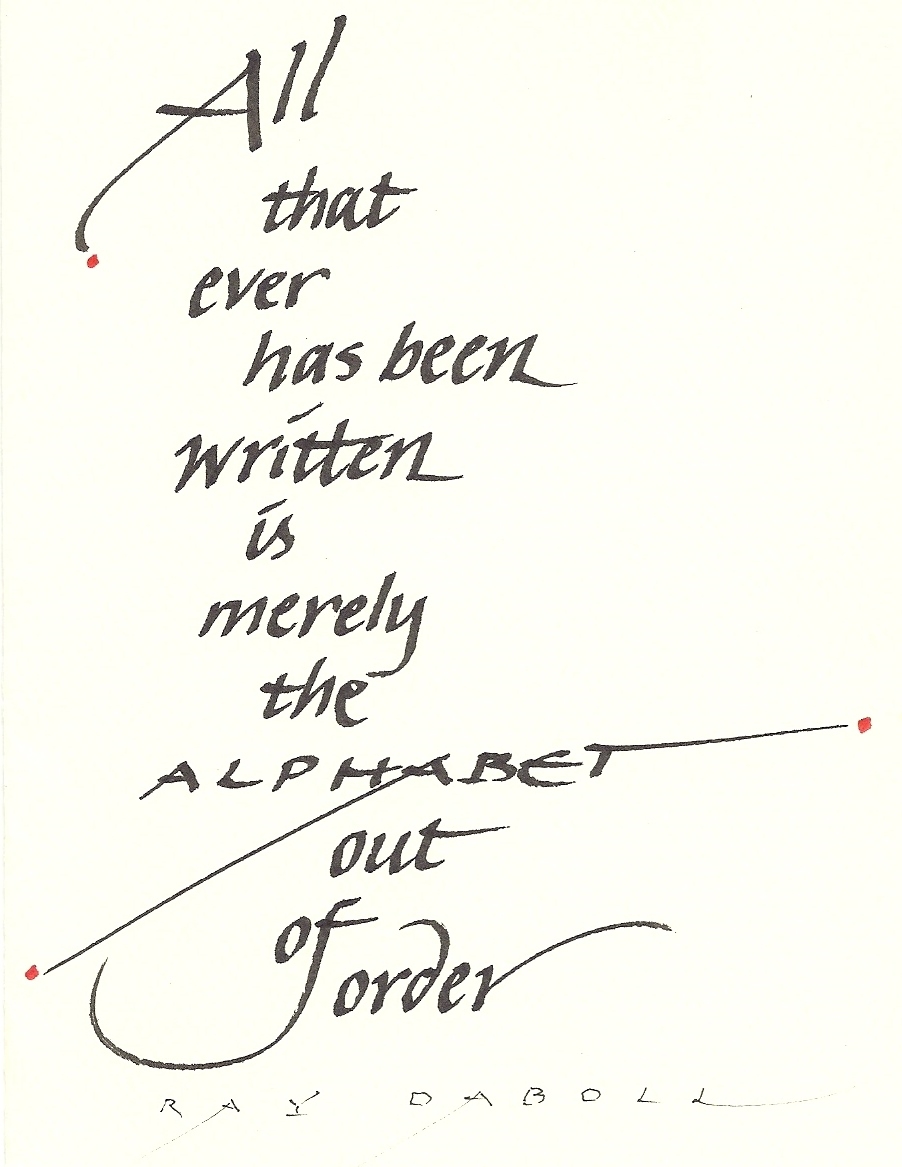 All
that
ever
has been
written
is
merely
the
ALPHABET
out
of
order
RAY DABOLL